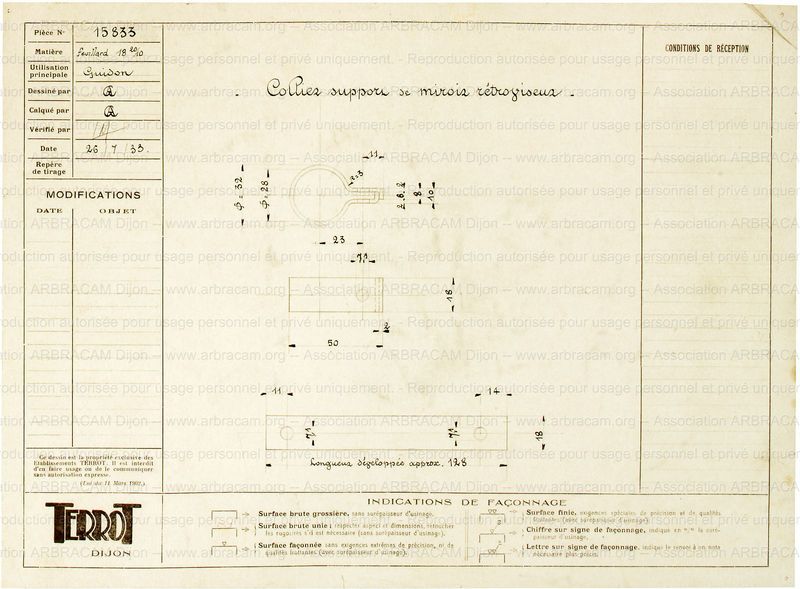 Pièce N° 15833
Matière feuillard 18 20/10
Utilisation principale Guidon
Dessiné par
Calqué par
Vérifié par
Date 26/7/33.
Repère de tirage
MODIFICATIONS
DATE OBJET
CONDITIONS DE RÉCEPTION
Collier support de miroir rétroviseur
11
R=3
Φ=32
Φ=28
2.6.2
8
10
23
7,1
18
2
50
11
14
7,1
7,1
18
Longueur développée approx. 128
Ce dessin est la propriété exclusive des
Etablissements TERROT. Il est interdit
d'en faire usage ou de le communiquer
sans autorisation expresse.
(Loi du 11 Mars 1902.)
TERROT
DIJON
INDICATIONS DE FAÇONNAGE
Surface brute grossière, sans surépaisseur d'usinage.
Surface brute unie; respecter aspect et dimensions, retoucher
les rugosités s'il est nécessaire (sans surépaisseur d'usinage).
Surface façonnée sans exigences extrêmes de précision, ni de
qualités frottantes (avec surépaisseur d'usinage).
Surface finie, exigences spéciales de précision et de qualités
frottantes (avec surépaisseur d'usinage).
Chiffre sur signe de façonnage, indique en m/m la surépaisseur d'usinage.
Lettre sur signe de façonnage, indique le renvoi à une note
nécessaire plus précise.
www.arbracam.org -- Association ARBRACAM Dijon -- www.arbracam.org -- Association ARBRACAM Dijon
Reproduction autorisée pour usage personnel et privé uniquement.